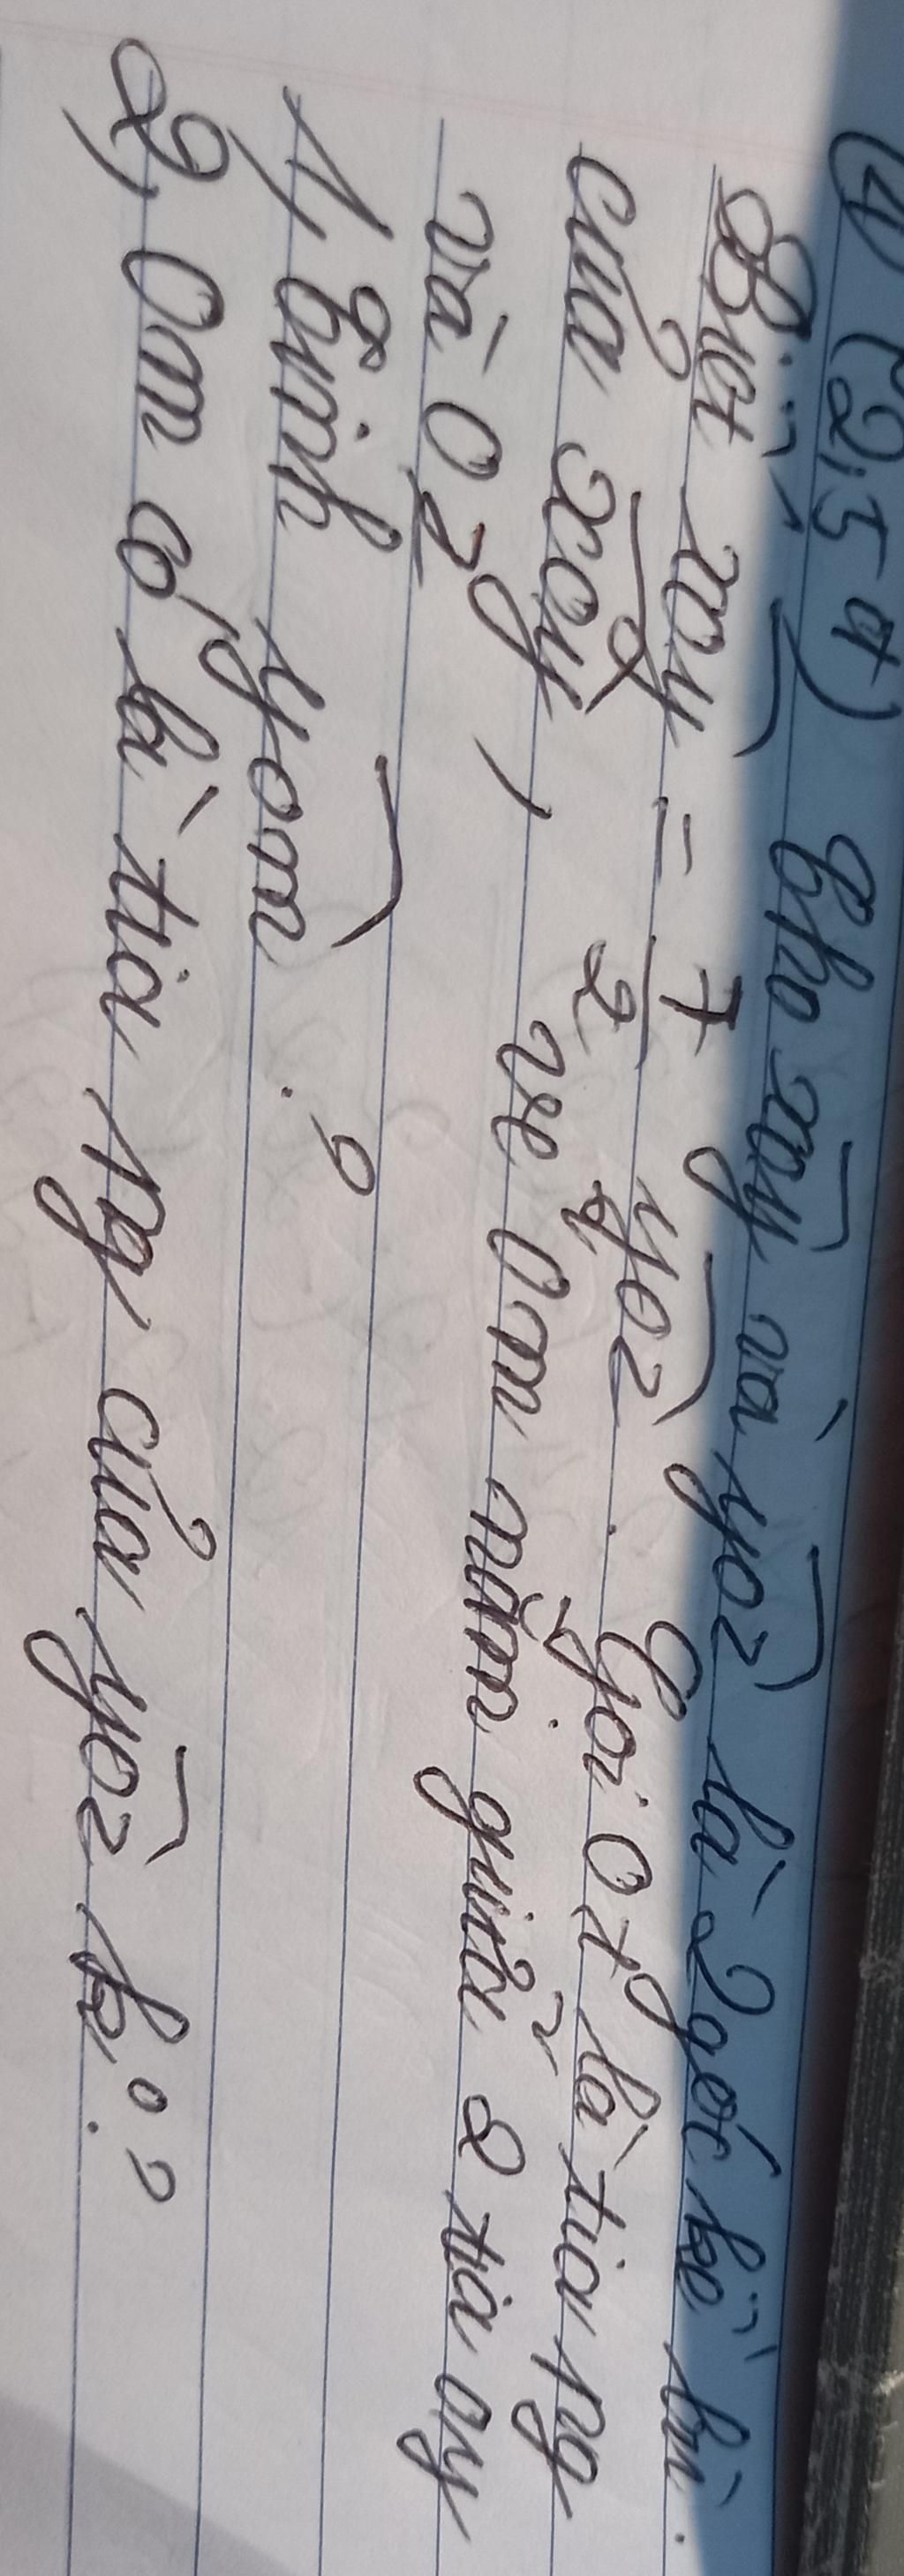 4) (2,5 đ) Cho xOy và yOz là 2 góc kề bù.
Biết xOy = 7/2 yOz. Gọi Ot là tia pg
của xOy, vẽ Om nằm giữa 2 tia Oy
và Oz
1, Tính yOm ?
2, Om có là tia pg của yOz k?